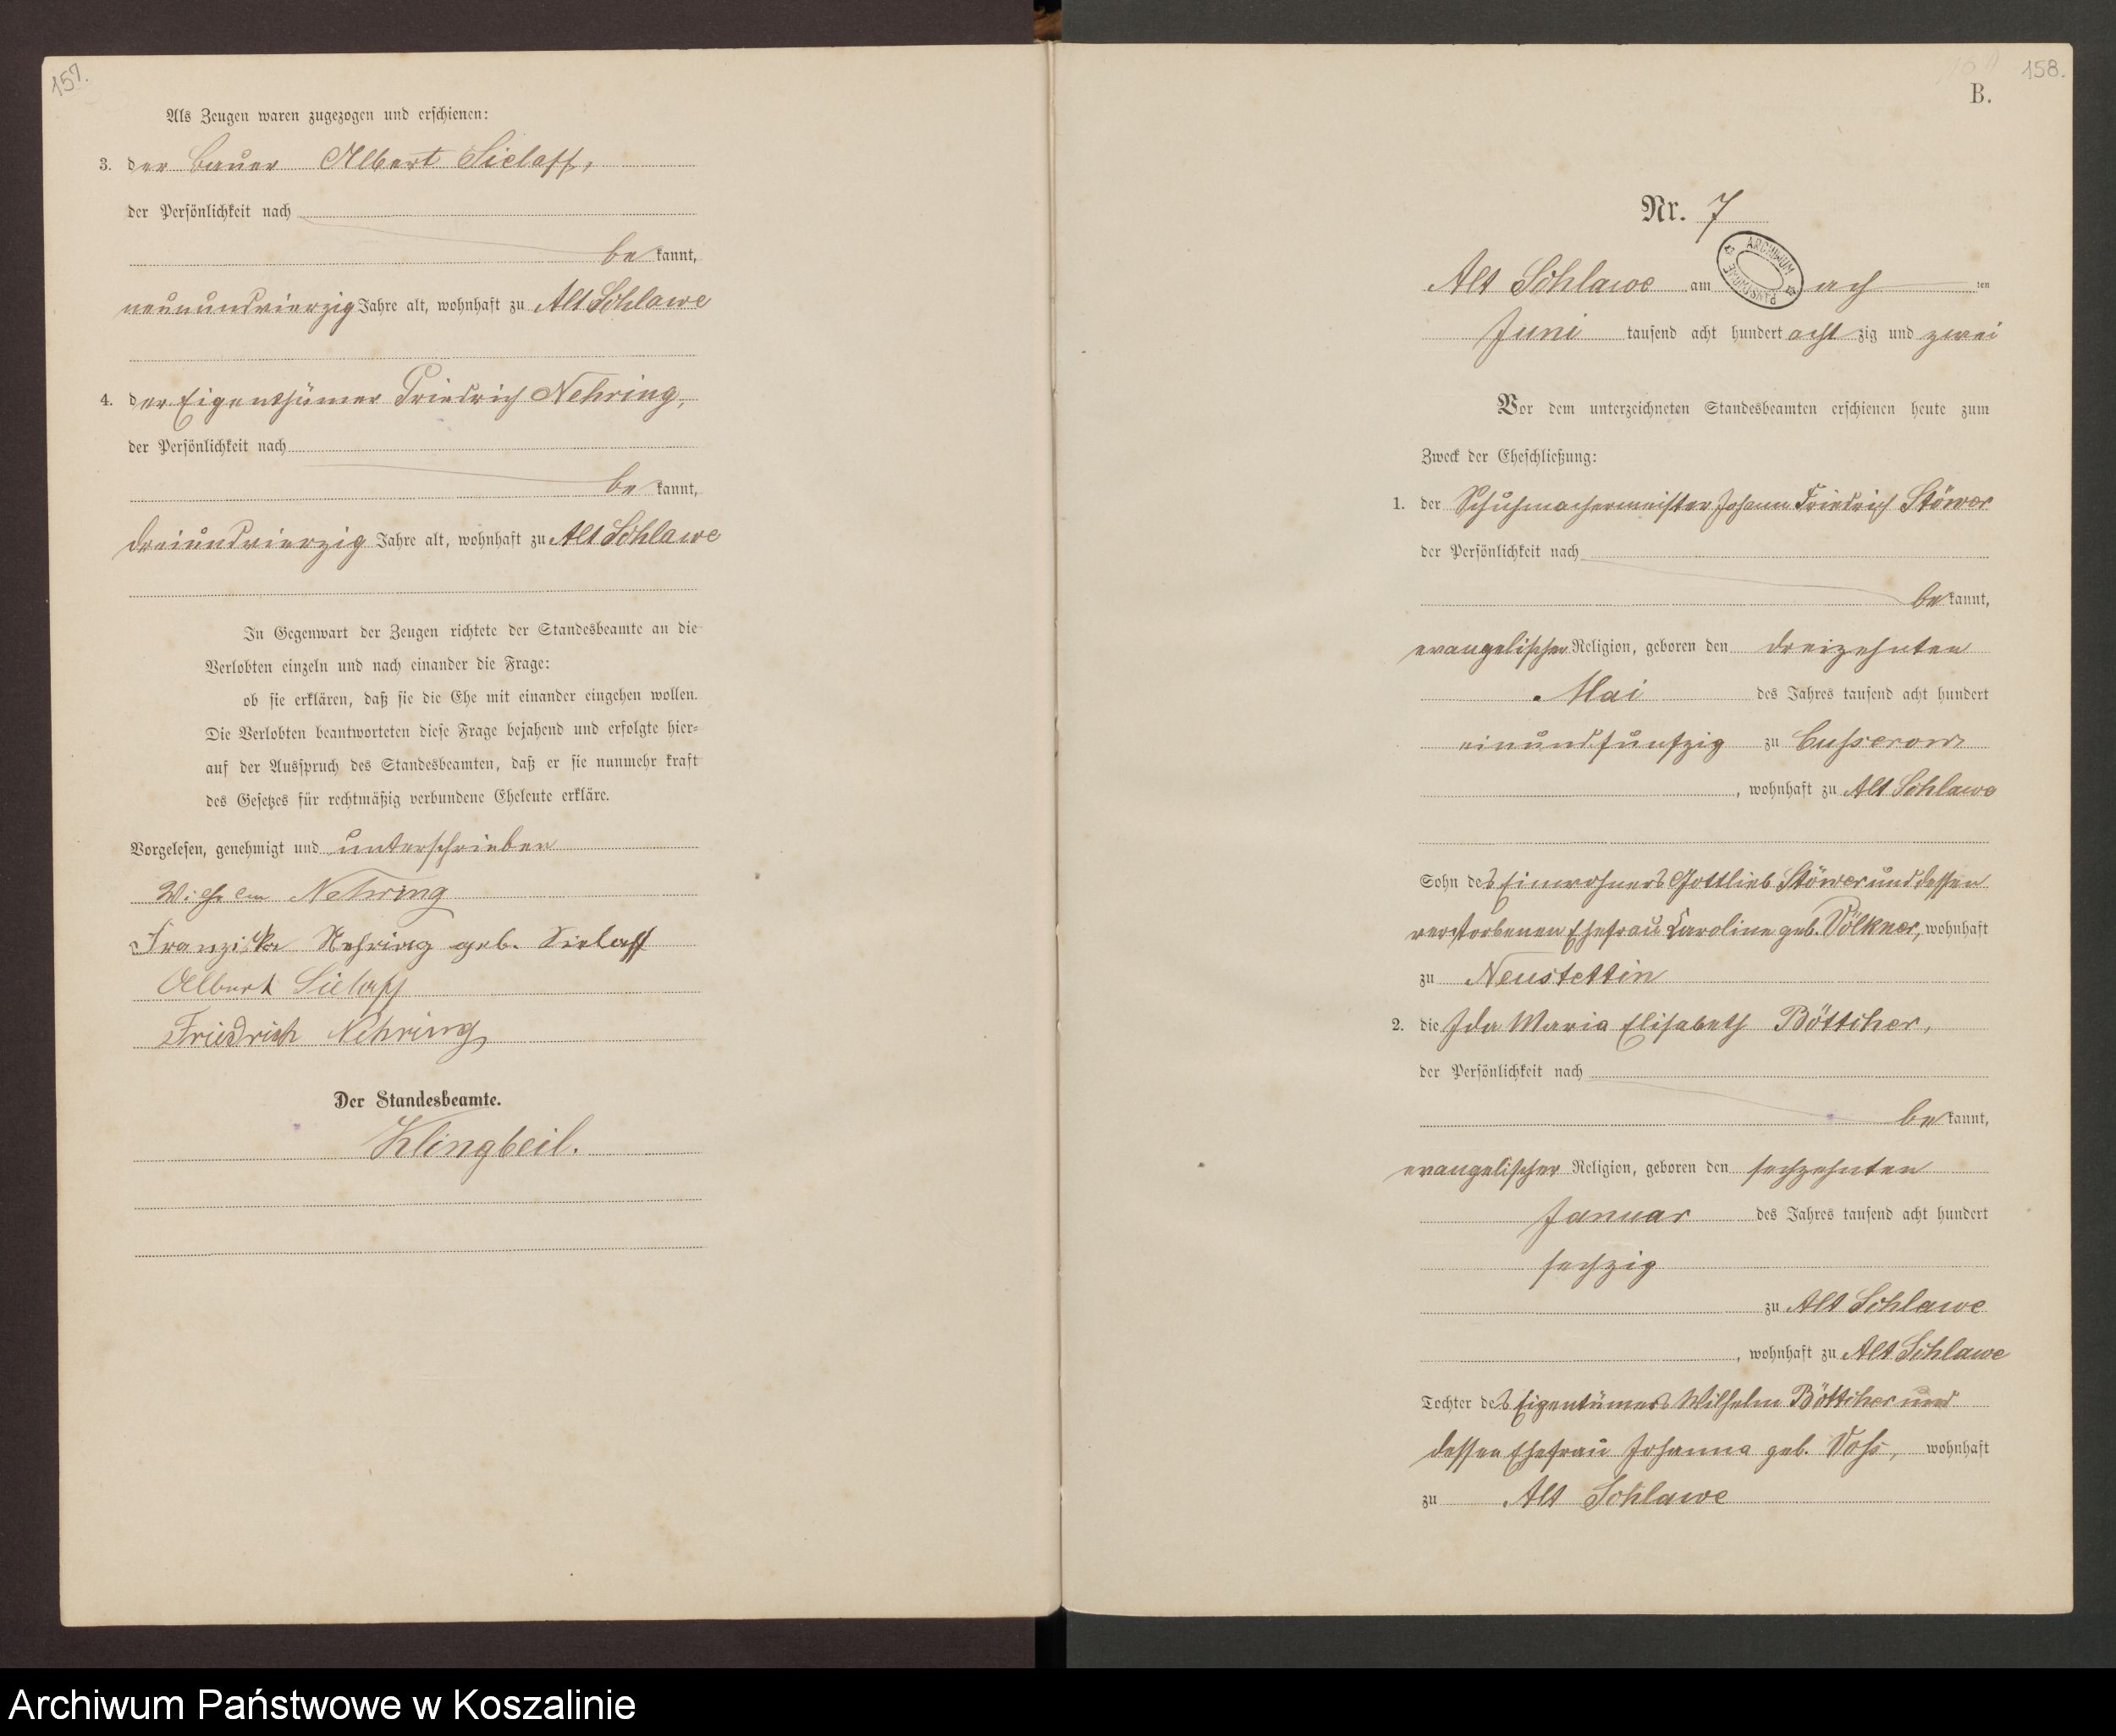 157.
Als Zeugen waren zugezogen und erschienen:
3. der Bauer Albert Sielaff,
der Persönlichkeit nach
be kannt,
neunundvierzig Jahre alt, wohnhaft zu Alt Schlawe
4. der Eigenthümer Friedrich Nehring,
der Persönlichkeit nach
be kannt,
dreiundvierzig Jahre alt, wohnhaft zu Alt Schlawe
In Gegenwart der Zeugen richtete der Standesbeamte an die
Verlobten einzeln und nach einander die Frage:
ob sie erklären, daß sie die Ehe mit einander eingehen wollen.
Die Verlobten beantworteten diese Frage bejahend und erfolgte hier-
auf der Ausspruch des Standesbeamten, daß er sie nunmehr kraft
des Gesetzes für rechtmäßig verbundene Eheleute erkläre.
Vorgelesen, genehmigt und unterschrieben
Wilhelm Nehring
Franziska Nehring geb. Sielaff
Albert Sielaff
Friedrich Nehring
Der Standesbeamte.
Klingbeil.
158.
B.
Nr. 7
ARCHIWUM PAŃSTWOWE
Alt Schlawe am ten
Juni tausend acht hundert acht zig und zwei
Vor dem unterzeichneten Standesbeamten erschienen heute zum
Zweck der Eheschließung:
1. der Schuhmachermeister Johann Friedrich Stöwer
der Persönlichkeit nach
be kannt,
evangelischer Religion, geboren den dreizehnten
Mai des Jahres tausend acht hundert
einundfünfzig zu Busserow
, wohnhaft zu Alt Schlawe
Sohn des Einwohners Gottlieb Stöwer und dessen
verstorbenen Ehefrau Caroline geb. Völkner, wohnhaft
zu Neustettin
2. die Ida Maria Elisabeth Böttcher,
der Persönlichkeit nach
be kannt,
evangelischer Religion, geboren den sechzehnten
Januar des Jahres tausend acht hundert
sechzig
zu Alt Schlawe
, wohnhaft zu Alt Schlawe
Tochter des Eigentümers Wilhelm Böttcher und
dessen Ehefrau Johanna geb. Voss, wohnhaft
zu Alt Schlawe
Archiwum Państwowe w Koszalinie